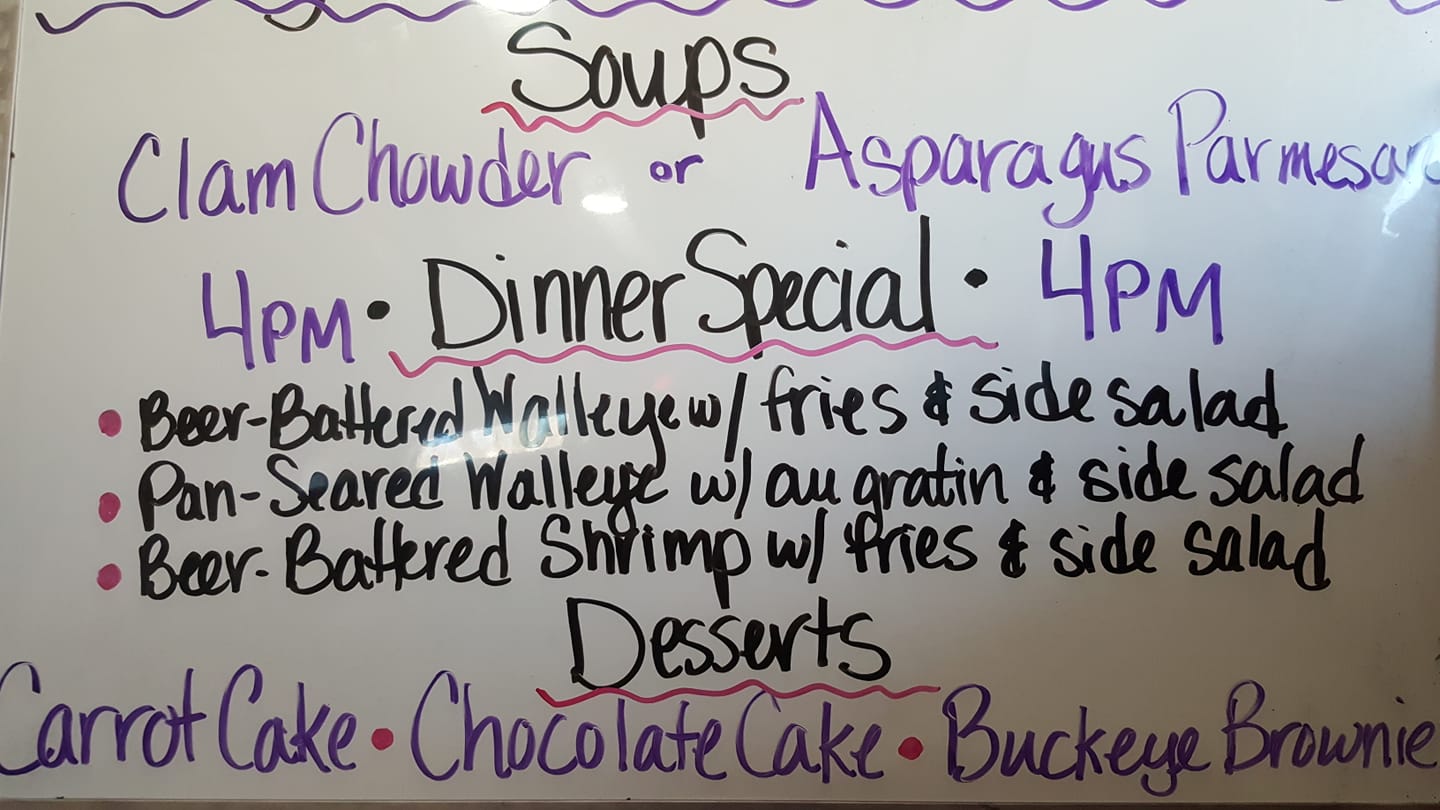 Soups
Clam Chowder or Asparagus Parmesan
4PM • Dinner Special • 4PM
• Beer-Battered Walleye w/ fries & side salad
• Pan-Seared Walleye w/ au gratin & side salad
• Beer-Battered Shrimp w/ fries & side salad
Desserts
Carrot Cake • Chocolate Cake • Buckeye Brownie